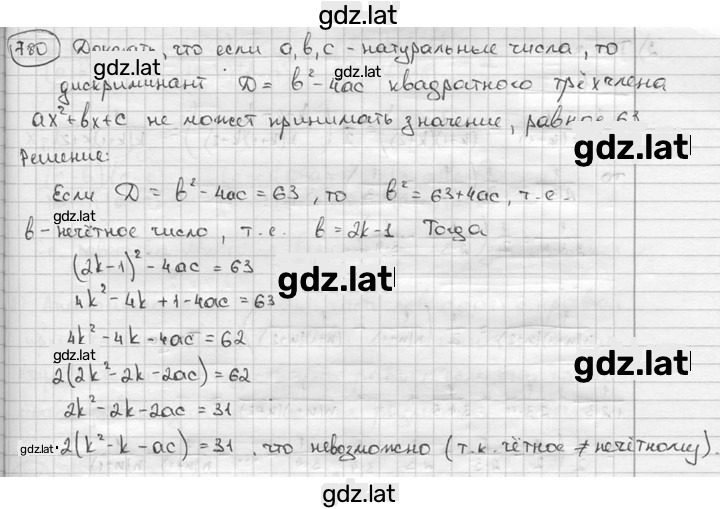 gdz.lat
780 Доказать, что если a, b, c - натуральные числа, то
gdz.lat
дискриминант D = b² - 4ac квадратного трёхчлена
ax² + bx + c не может принимать значение, равное 63
gdz.lat
Решение:
Если D = b² - 4ac = 63, то b² = 63 + 4ac, т.е.
gdz.lat
b - нечётное число, т.е. b = 2k-1 Тогда
(2k-1)² - 4ac = 63
gdz.lat
4k² - 4k + 1 - 4ac = 63
4k² - 4k - 4ac = 62
gdz.lat
gdz.lat
2(2k² - 2k - 2ac) = 62
2k² - 2k - 2ac = 31
gdz.lat
2(k² - k - ac) = 31, что невозможно (т.к. чётное ≠ нечётному).
gdz.lat